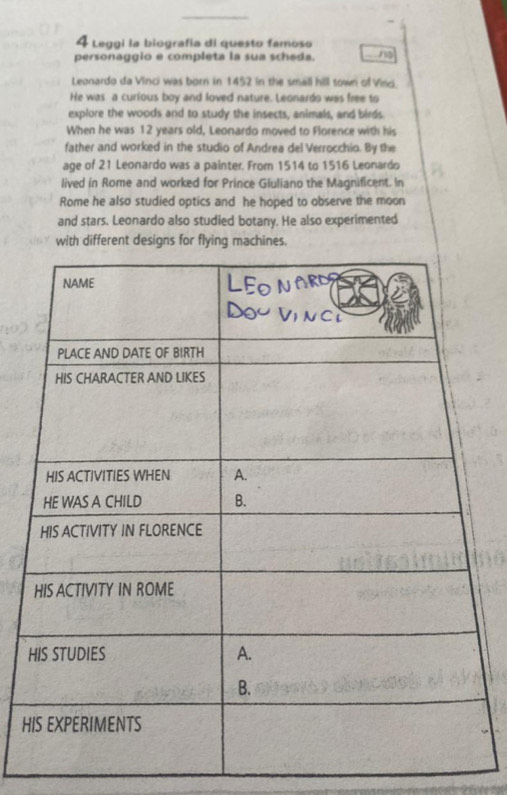 4 Leggi la biografia di questo famoso
personaggio e completa la sua scheda.
.../10
Leonardo da Vinci was born in 1452 in the small hill town of Vinci.
He was a curious boy and loved nature. Leonardo was free to
explore the woods and to study the insects, animals, and birds.
When he was 12 years old, Leonardo moved to Florence with his
father and worked in the studio of Andrea del Verrocchio. By the
age of 21 Leonardo was a painter. From 1514 to 1516 Leonardo
lived in Rome and worked for Prince Giuliano the Magnificent. In
Rome he also studied optics and he hoped to observe the moon
and stars. Leonardo also studied botany. He also experimented
with different designs for flying machines.
NAME
LEONARDO
DOU VINCI
PLACE AND DATE OF BIRTH
HIS CHARACTER AND LIKES
HIS ACTIVITIES WHEN A.
HE WAS A CHILD B.
HIS ACTIVITY IN FLORENCE
HIS ACTIVITY IN ROME
HIS STUDIES A.
B.
HIS EXPERIMENTS